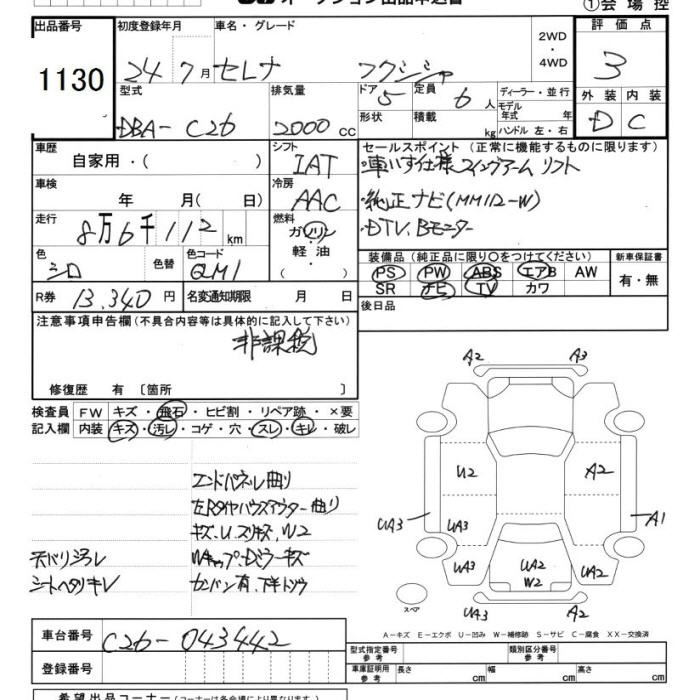 オークション出品申込書
①会場控
出品番号 1130
初度登録年月 24 7月
車名・グレード セレナ フクシシャ
2WD・4WD
評価点 3
型式 DBA-C26
排気量 2000 cc
ドア 5 定員 6 人
形状 積載 kg
ディーラー・並行
モデル年式 年
ハンドル 左・右
外装 内装
D C
車歴 自家用・( )
シフト IAT
セールスポイント(正常に機能するものに限ります)
・車いす仕様 スイングアーム リフト
車検 年 月( 日)
冷房 AAC
・純正ナビ(MM112-W)
走行 8万6千112 km
燃料 ガソリン・軽油・
・DTV、Bモニター
色 シロ 色替
色コード QM1
装備品(純正品に限り○をつけてください)
新車保証書 有・無
PS PW ABS エアB AW
SR ナビ TV カワ
R券 13,340 円
名変通知期限 月 日
後日品
注意事項申告欄(不具合内容等は具体的に記入して下さい)
非課税
修復歴 有〔箇所 〕
検査員記入欄
FW キズ・飛石・ヒビ割・リペア跡・×要
内装 キズ・汚レ・コゲ・穴・スレ・キレ・破レ
エンドパネル曲り
左Rタイヤハウスアウター曲り
キズ、U、スリキズ、W2
天バリヨゴレ
シートヘタリキレ
A2 A3
U2 A2
UA3 UA3 A1
UA3 UA2 W2 UA2
UA3 A2
スペア
A-キズ E-エクボ U-凹み W-補修跡 S-サビ C-腐食 XX-交換済
車台番号 C26-043442
登録番号
型式指定番号 参考
類別区分番号 参考
車庫証明用 参考 長さ cm 幅 cm 高さ cm
希望出品コーナー(コーナーは各会場により異なります)